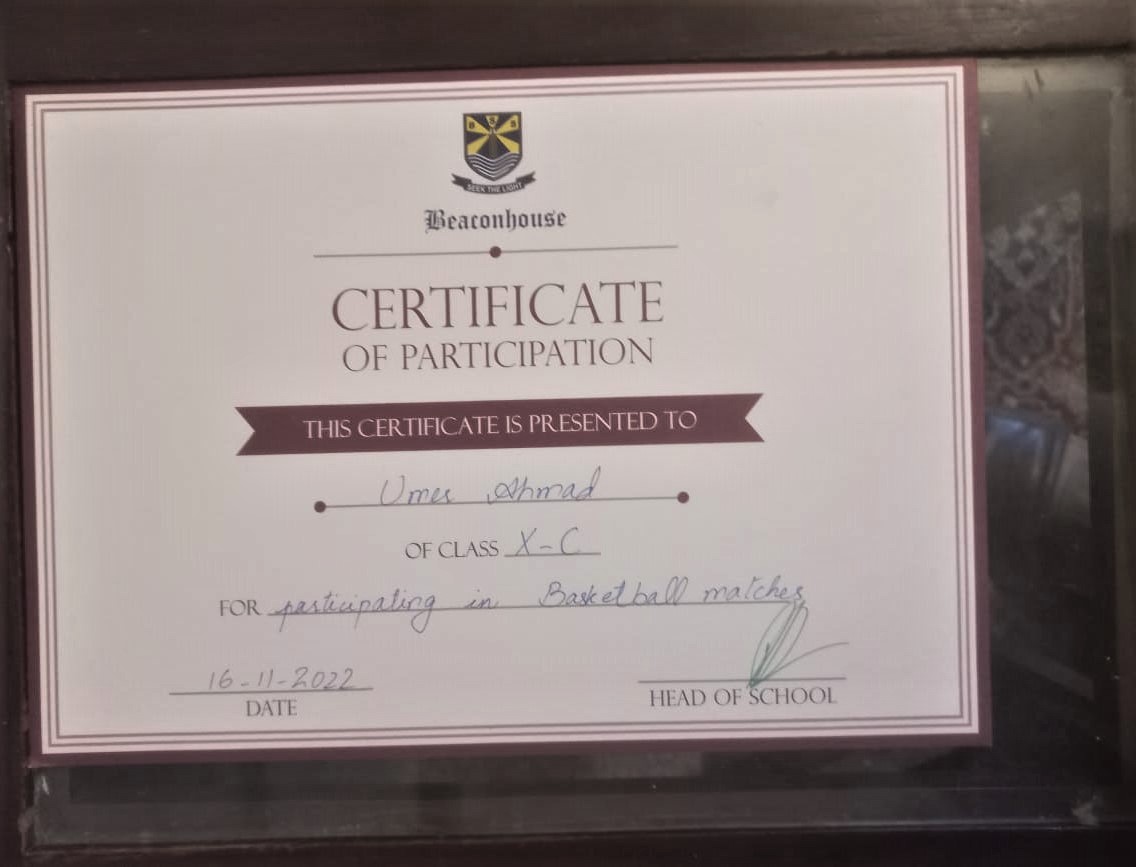 B S S
SEEK THE LIGHT
Beaconhouse
CERTIFICATE
OF PARTICIPATION
THIS CERTIFICATE IS PRESENTED TO
Umer Ahmad
OF CLASS X-C
FOR participating in Basketball matches
16-11-2022
DATE
HEAD OF SCHOOL